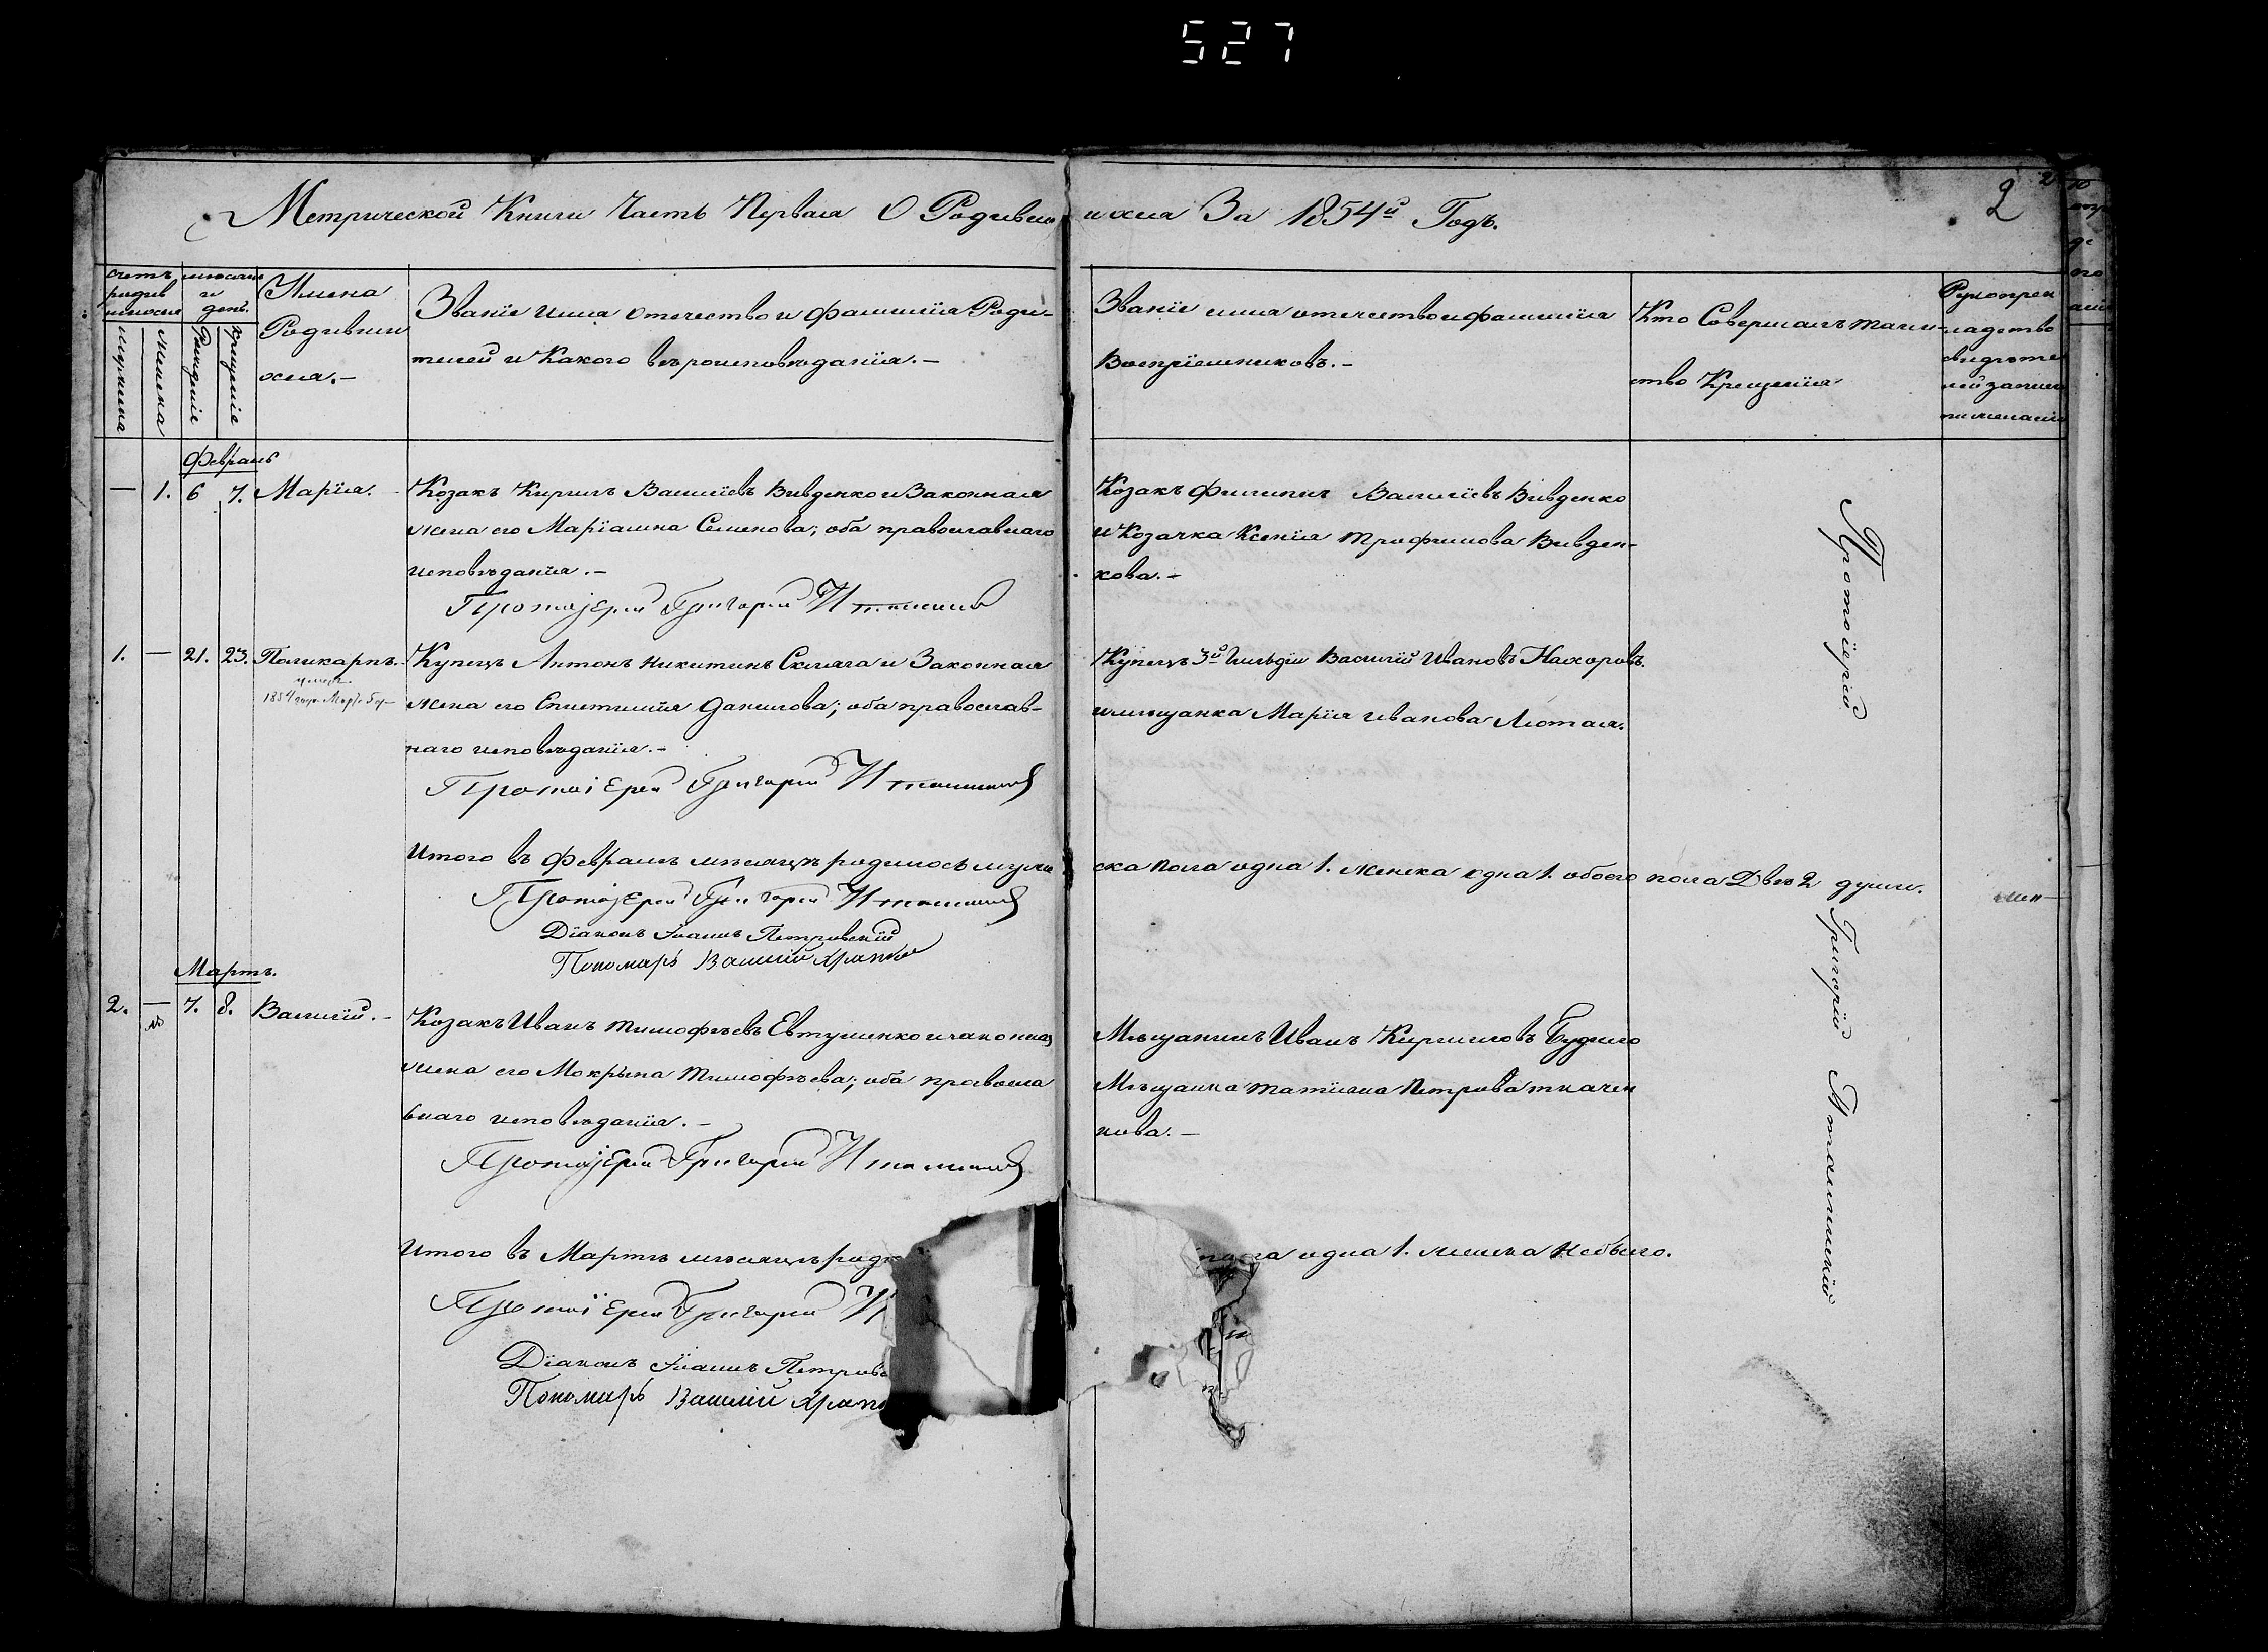 527
Метрической Книги Часть Первая О Родившихся За 1854й Годъ.
2
счетъ родив шихся
мѣсяцъ и день.
мужска
женска
Рожденіе
Крещеніе
Имена
Родивши
хся.-
Званіе имя отечество и фамилія Роди-
телей и Какого вѣроисповѣданія.-
Званіе имя отечество и фамилія
Воспріемниковъ.-
Кто Совершалъ таин-
ство Крещенія
Рукопрек
ладство
свидѣте
лей записи
по желанію
Февраль
— 1. 6 7. Марія.
Козакъ Кирилъ Василіевъ Вивденко и Законная
жена его Маріамна Семенова; оба православнаго
исповѣданія.-
Протоіерей Григорій
Козакъ Филиппъ Василіевъ Вивденко
и Козачка Ксенія Трофимова Вивден-
кова.-
1. — 21. 23. Поликарпъ.
1854
Купецъ Антонъ Никитинъ Скляга и Законная
жена его Епистимія Данилова; оба православ-
наго исповѣданія.-
Протоіерей Григорій
Купецъ 3й Гильдіи Василій Ивановъ Нахоровъ.
и мѣщанка Марія Иванова Лютая.
Итого въ Февралѣ мѣсяцѣ родилось мужеска пола одна 1. женска одна 1. обоего пола Двѣ 2 души.
Протоіерей Григорій
Діаконъ Іоаннъ Петровскій
Пономарь Василій Храпко
Мартъ.
2. — 7. 8. Василій.-
Козакъ Иванъ Тимофѣевъ Евтушенко и законная
жена его Мокрына Тимофѣева; оба правосла
внаго исповѣданія.-
Протоіерей Григорій
Мѣщанинъ Иванъ Кирилловъ
Мѣщанка Татіана Петрова ткачен
кова.-
Итого въ Мартѣ мѣсяцѣ род
пола одна 1. женска небыло.
Протоіерей Григорій
Діаконъ Іоаннъ Петровс
Пономарь Василій Храпк
Протоіерей Григорій